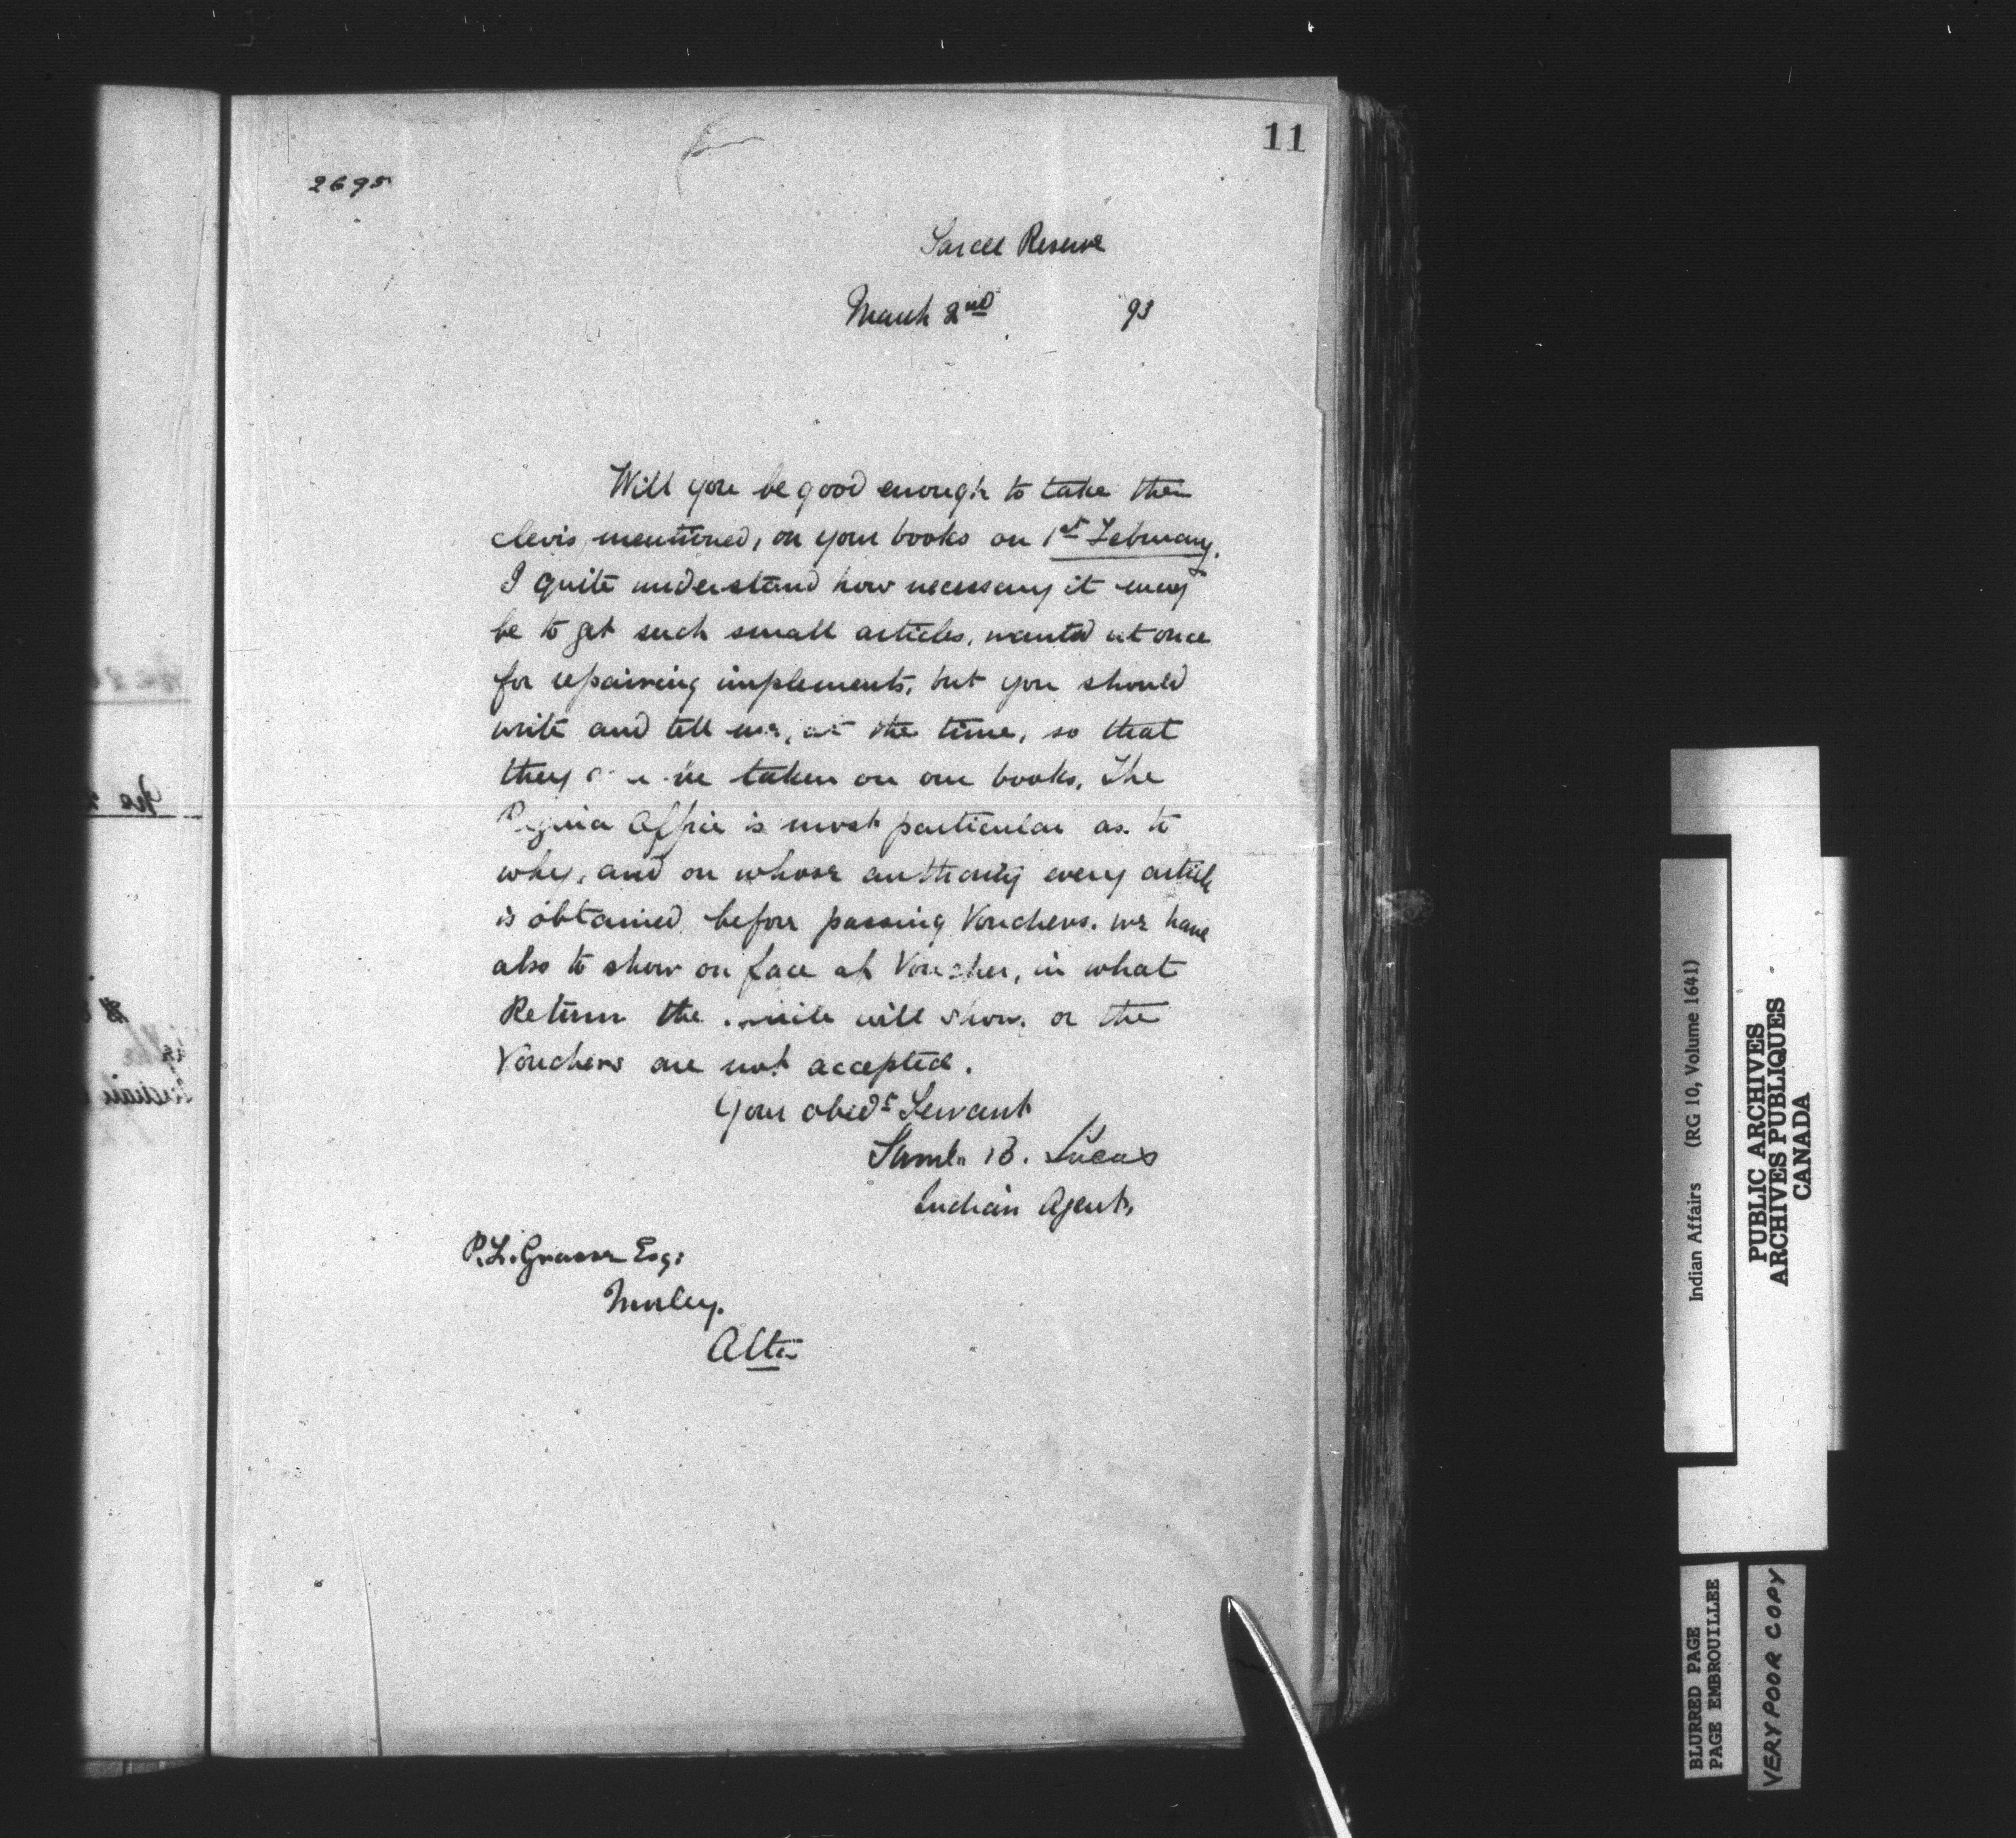 11
2695
Sarcee Reserve
March 2nd 93
Will you be good enough to take the
clevis mentioned, on your books on 1st February.
I quite understand how necessary it may
be to get such small articles, wanted at once
for repairing implements, but you should
write and tell me, at the time, so that
they be taken on our books. The
Regina Office is most particular as to
why, and on whose authority every article
is obtained before passing Vouchers. We have
also to show on face of Voucher, in what
Return the will show, or the
Vouchers are not accepted.
Your obedt Servant
Saml. B. Lucas
Indian Agent.
P. L. Grasse Esq:
Morley.
Alta
Indian Affairs (RG 10, Volume 1641)
PUBLIC ARCHIVES
ARCHIVES PUBLIQUES
CANADA
BLURRED PAGE
PAGE EMBROUILLEE
VERY POOR COPY